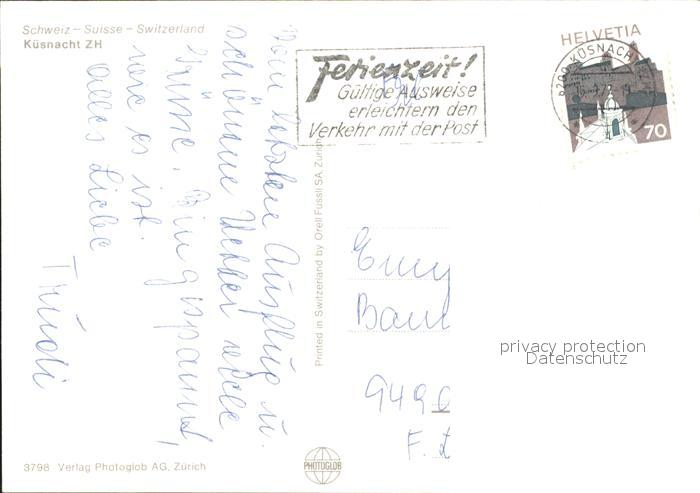 Schweiz – Suisse – Switzerland
Küsnacht ZH
Ferienzeit!
Gültige Ausweise
erleichtern den
Verkehr mit der Post
HELVETIA
KÜSNACHT
70
Ausflug u.
schönne
Grüsse. Bin gespannt,
wie es ist.
Alles Liebe
Trudi
Printed in Switzerland by Orell Füssli SA, Zürich
Emy
9490
privacy protection
Datenschutz
3798 Verlag Photoglob AG, Zürich
PHOTOGLOB